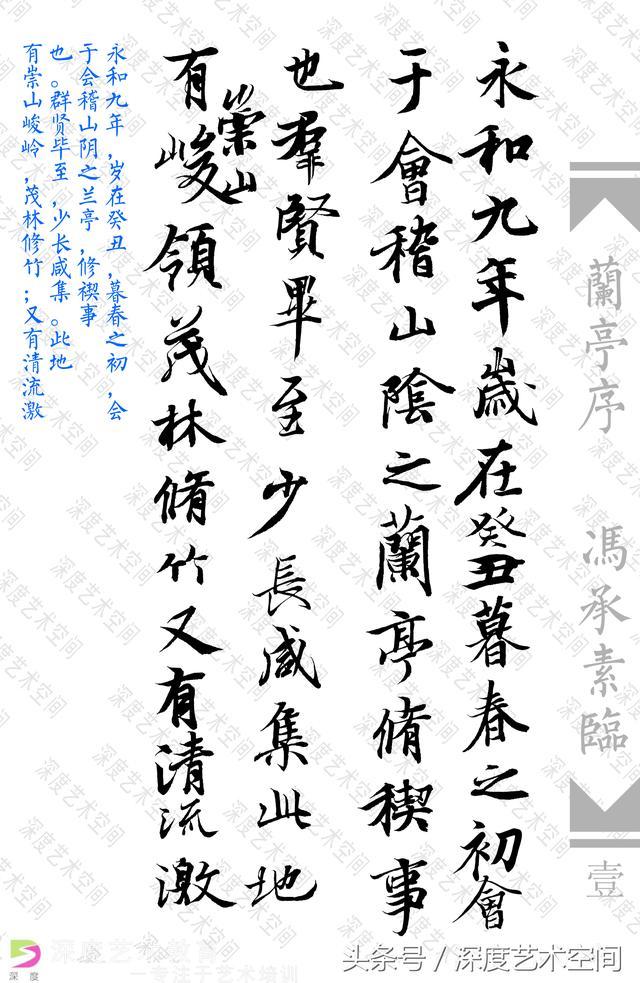 蘭亭序 馮承素臨 壹
永和九年歲在癸丑暮春之初會
于會稽山陰之蘭亭脩稧事
也羣賢畢至少長咸集此地
有崇山峻領茂林脩竹又有清流激
永和九年,岁在癸丑,暮春之初,会
于会稽山阴之兰亭,修禊事
也。群贤毕至,少长咸集。此地
有崇山峻岭,茂林修竹;又有清流激
深度艺术空间
深度
深度艺术教育
一专注于艺术培训
头条号 / 深度艺术空间